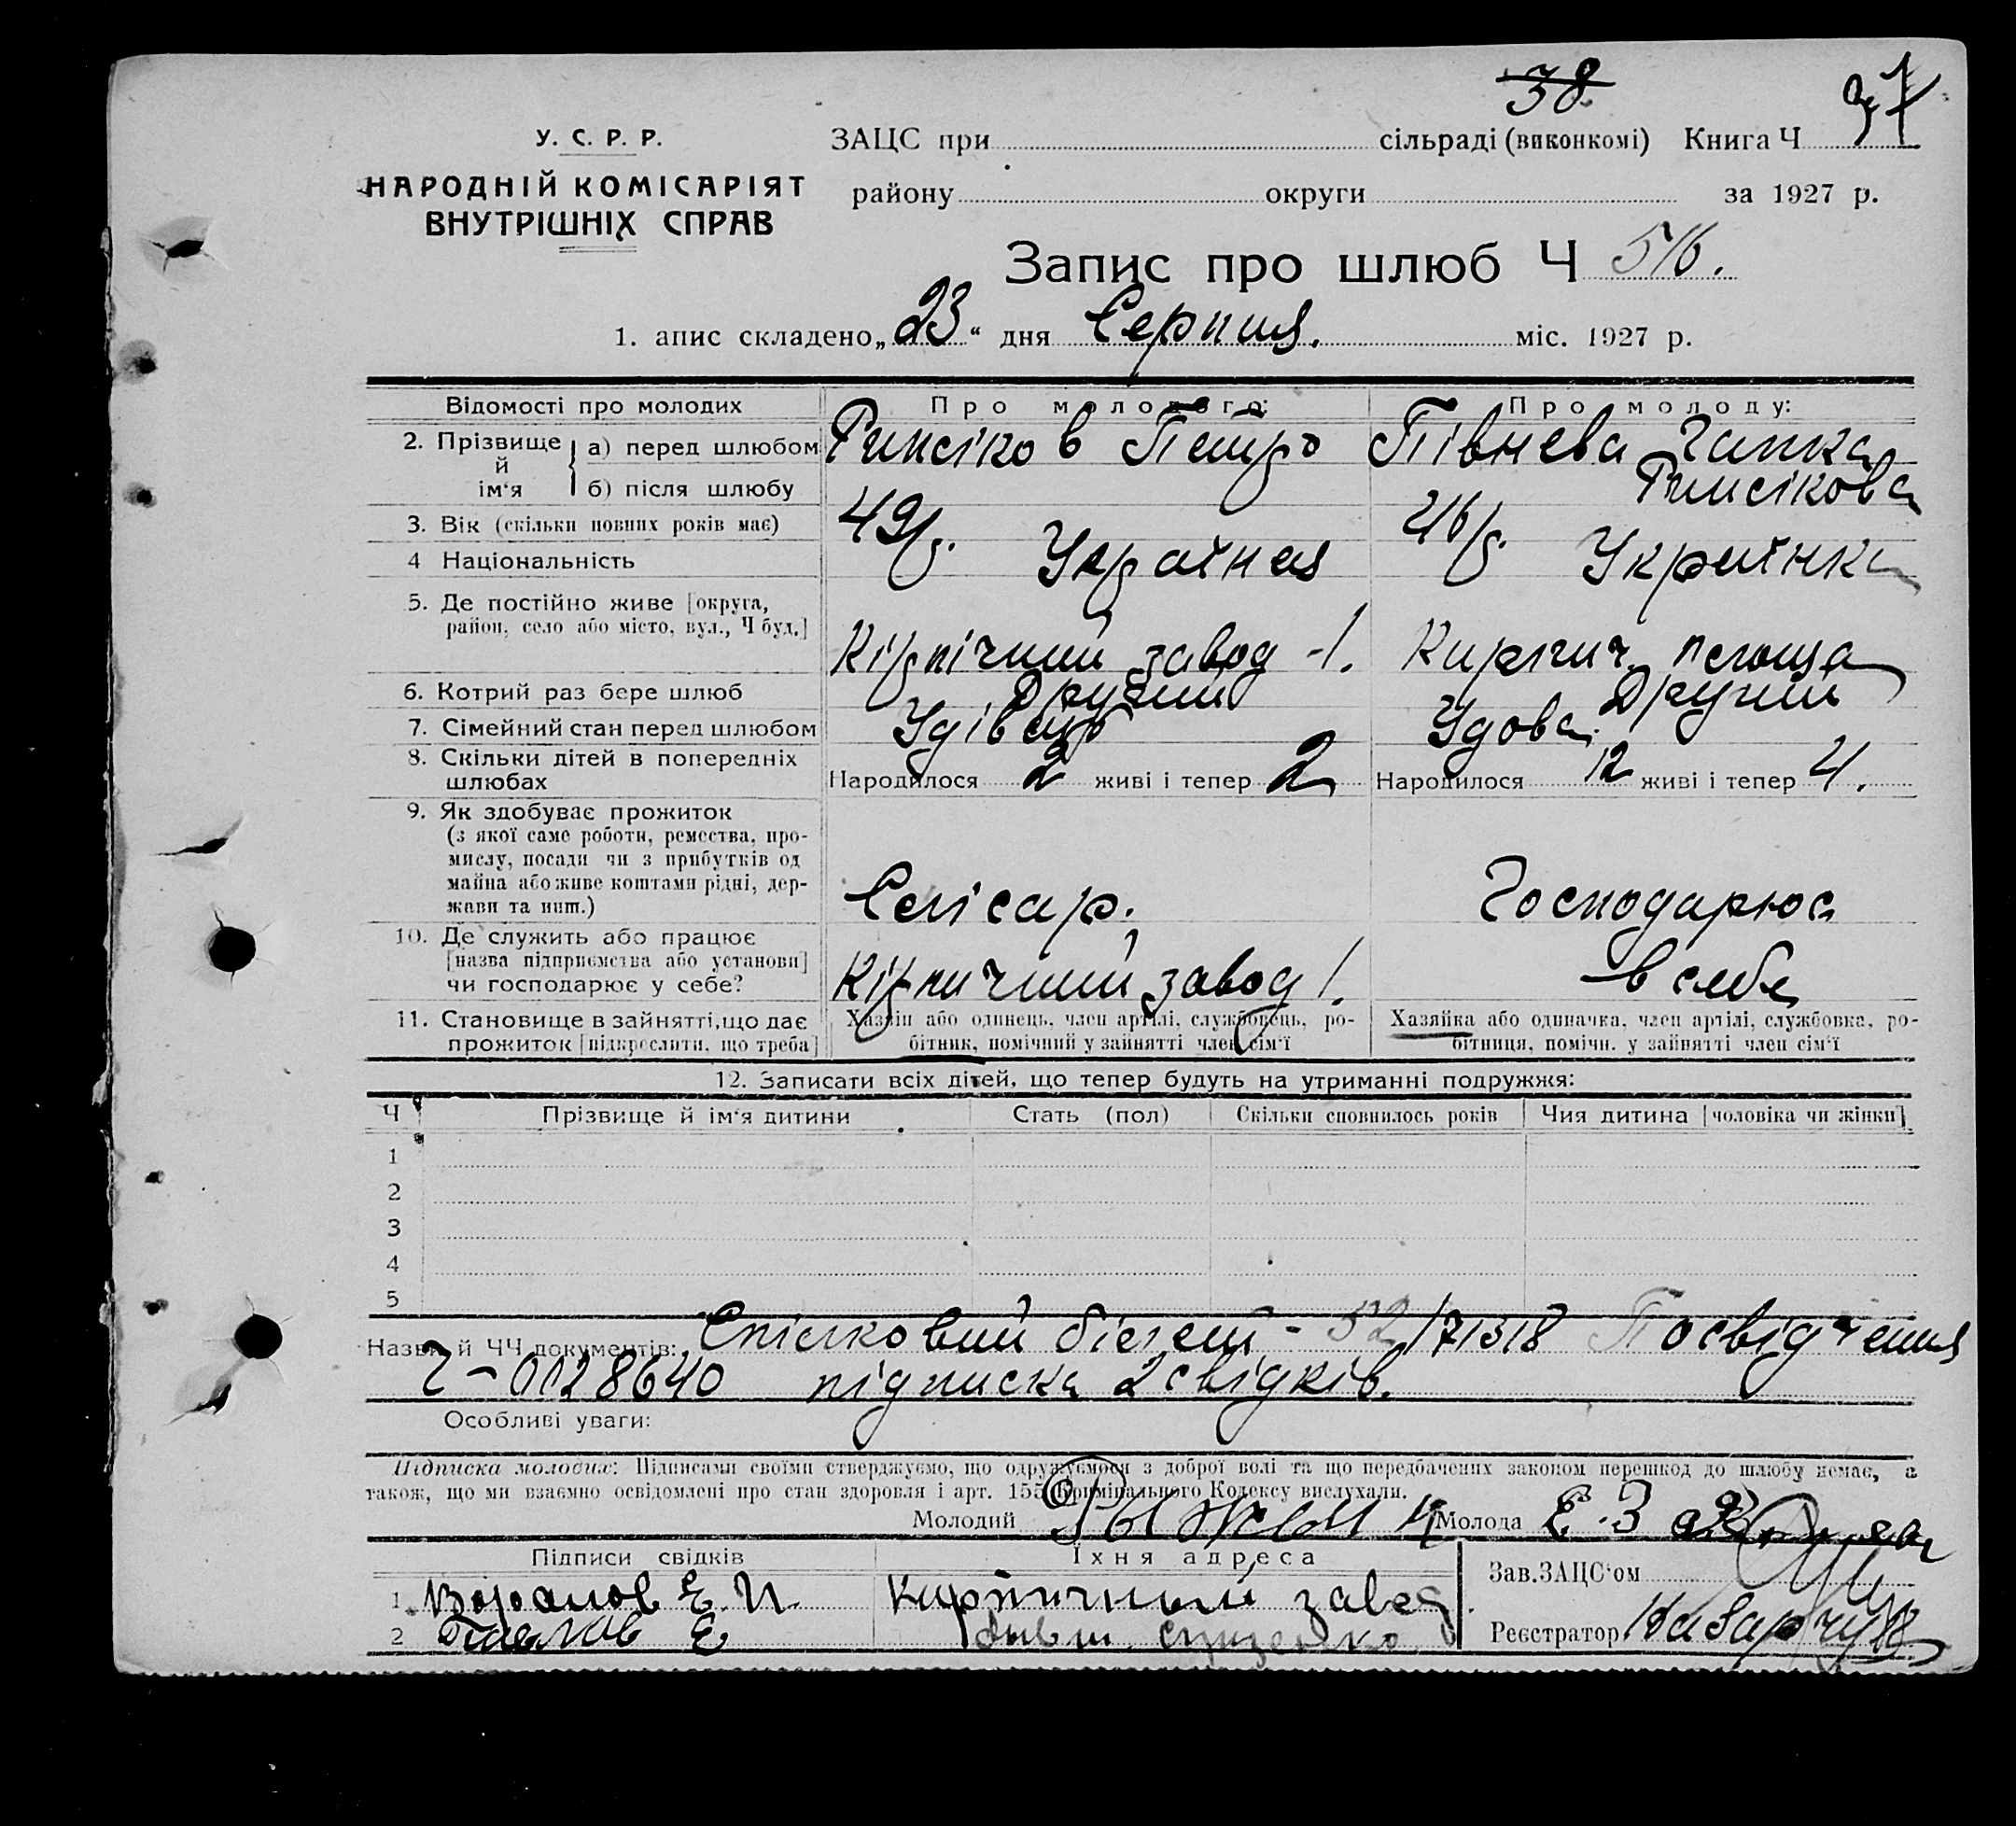 38
97
У. С. Р. Р.
НАРОДНІЙ КОМІСАРІЯТ
ВНУТРІШНІХ СПРАВ
ЗАЦС при сільраді (виконкомі) Книга Ч
району округи за 1927 р.
Запис про шлюб Ч 516.
1. апис складено „23“ дня Серпня. міс. 1927 р.
Відомості про молодих Про молодого: Про молоду:
2. Прізвище й ім‘я а) перед шлюбом Петро Півнева
б) після шлюбу
3. Вік (скільки повних років має) 49/р. 46/р.
4 Національність Українец Українка
5. Де постійно живе [округа,
район, село або місто, вул., Ч буд.] Кірпічний завод -1. Кирпич. площа
6. Котрий раз бере шлюб Другий Другий
7. Сімейний стан перед шлюбом Удівець Удова.
8. Скільки дітей в попередніх
шлюбах Народилося 2 живі і тепер 2 Народилося 12 живі і тепер 4.
9. Як здобуває прожиток
(з якої саме роботи, ремества, про-
мислу, посади чи з прибутків од
майна або живе коштами рідні, дер-
жави та инш.) Слісар. Господарює
10. Де служить або працює
[назва підприємства або установи]
чи господарює у себе? Кірпичний завод 1. в себе
11. Становище в зайнятті, що дає
прожиток [підкреслити, що треба]
Хазяїн або одинець, член артілі, службовець, ро-
бітник, помічний у зайнятті член сім‘ї
Хазяйка або одиначка, член артілі, службовка, ро-
бітниця, помічн. у зайнятті член сім‘ї
12. Записати всіх дітей, що тепер будуть на утриманні подружжя:
Ч Прізвище й ім‘я дитини Стать (пол) Скільки сповнилось років Чия дитина [чоловіка чи жінки]
1
2
3
4
5
Назви й ЧЧ документів: Спілковий білєт - 52/71318 Посвідчення
Ч-0128640 підписка 2 свідків.
Особливі уваги:
Підписка молодих: Підписами своїми стверджуємо, що одружуємося з доброї волі та що передбачених законом перешкод до шлюбу немає, а
також, що ми взаємно освідомлені про стан здоровля і арт. 155 Кримінального Кодексу вислухали.
Молодий Молода
Підписи свідків Їхня адреса Зав. ЗАЦС‘ом
1. Е. И. Кирпичный завод
2 Е Реєстратор